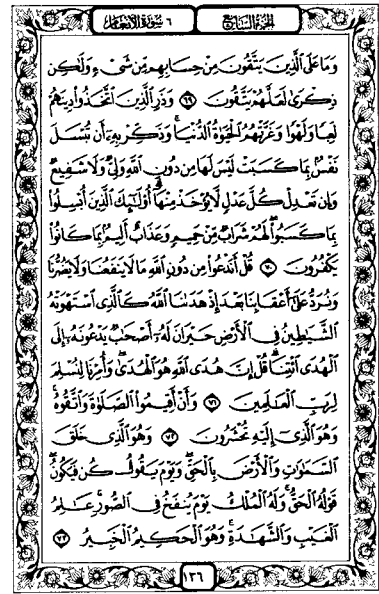 الجزء السابع ٦ سورة الأنعام
وَمَا عَلَى الَّذِينَ يَتَّقُونَ مِنْ حِسَابِهِم مِّن شَىْءٍ وَلَٰكِن
ذِكْرَىٰ لَعَلَّهُمْ يَتَّقُونَ ٦٩ وَذَرِ الَّذِينَ اتَّخَذُوا دِينَهُمْ
لَعِبًا وَلَهْوًا وَغَرَّتْهُمُ الْحَيَوٰةُ الدُّنْيَا وَذَكِّرْ بِهِ أَن تُبْسَلَ
نَفْسٌ بِمَا كَسَبَتْ لَيْسَ لَهَا مِن دُونِ اللَّهِ وَلِىٌّ وَلَا شَفِيعٌ
وَإِن تَعْدِلْ كُلَّ عَدْلٍ لَّا يُؤْخَذْ مِنْهَا أُولَٰئِكَ الَّذِينَ أُبْسِلُوا
بِمَا كَسَبُوا لَهُمْ شَرَابٌ مِّنْ حَمِيمٍ وَعَذَابٌ أَلِيمٌ بِمَا كَانُوا
يَكْفُرُونَ ٧٠ قُلْ أَنَدْعُوا مِن دُونِ اللَّهِ مَا لَا يَنفَعُنَا وَلَا يَضُرُّنَا
وَنُرَدُّ عَلَىٰ أَعْقَابِنَا بَعْدَ إِذْ هَدَىٰنَا اللَّهُ كَالَّذِى اسْتَهْوَتْهُ
الشَّيَٰطِينُ فِى الْأَرْضِ حَيْرَانَ لَهُ أَصْحَٰبٌ يَدْعُونَهُ إِلَى
الْهُدَى ائْتِنَا قُلْ إِنَّ هُدَى اللَّهِ هُوَ الْهُدَىٰ وَأُمِرْنَا لِنُسْلِمَ
لِرَبِّ الْعَٰلَمِينَ ٧١ وَأَنْ أَقِيمُوا الصَّلَوٰةَ وَاتَّقُوهُ
وَهُوَ الَّذِى إِلَيْهِ تُحْشَرُونَ ٧٢ وَهُوَ الَّذِى خَلَقَ
السَّمَٰوَٰتِ وَالْأَرْضَ بِالْحَقِّ وَيَوْمَ يَقُولُ كُن فَيَكُونُ
قَوْلُهُ الْحَقُّ وَلَهُ الْمُلْكُ يَوْمَ يُنفَخُ فِى الصُّورِ عَٰلِمُ
الْغَيْبِ وَالشَّهَٰدَةِ وَهُوَ الْحَكِيمُ الْخَبِيرُ ٧٣
١٣٦